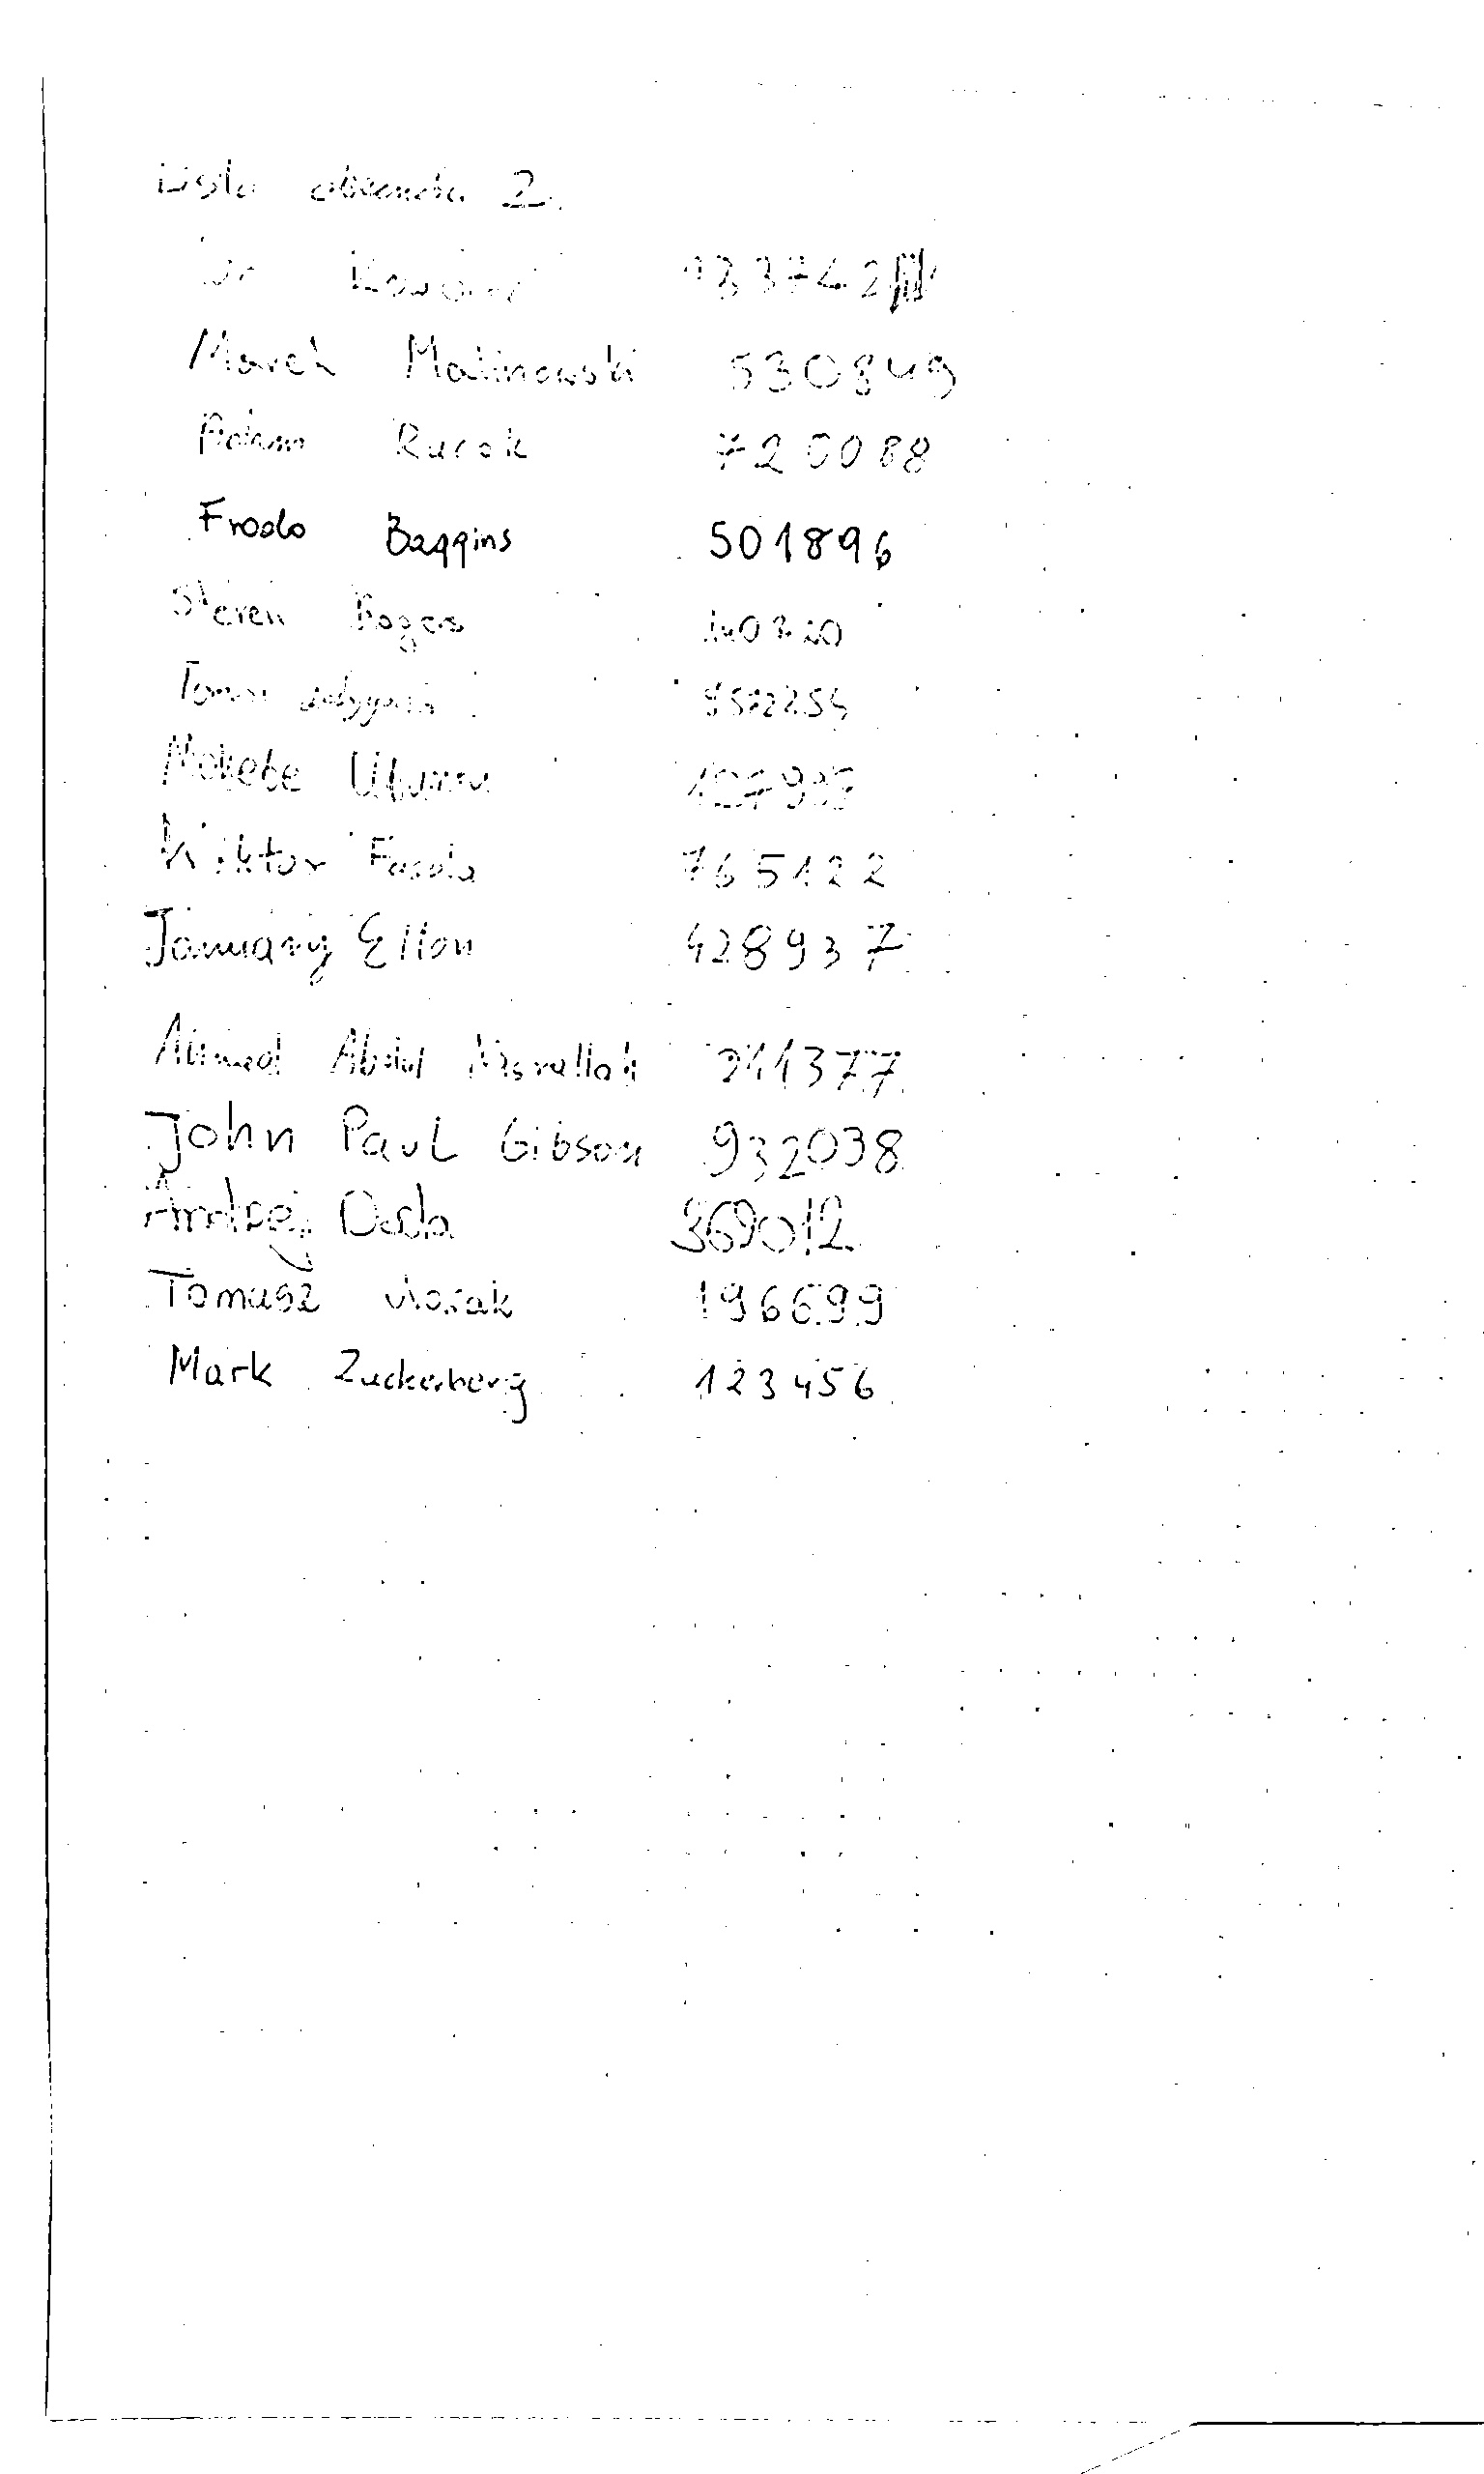 Lista 2.
Kowalski 133742
Marek Malinowski 530849
Adam Kucok 720088
Frodo Baggins 501896
Steven Rogers
Tomasz
Makebe Ubunu 107995
Wiktor Fasola 765122
January Elton 428937
Ahmed Abdul Nasrallah 211377
John Paul Gibson 932038
Andrzej Duda 369012
Tomasz 196699
Mark Zuckerberg 123456